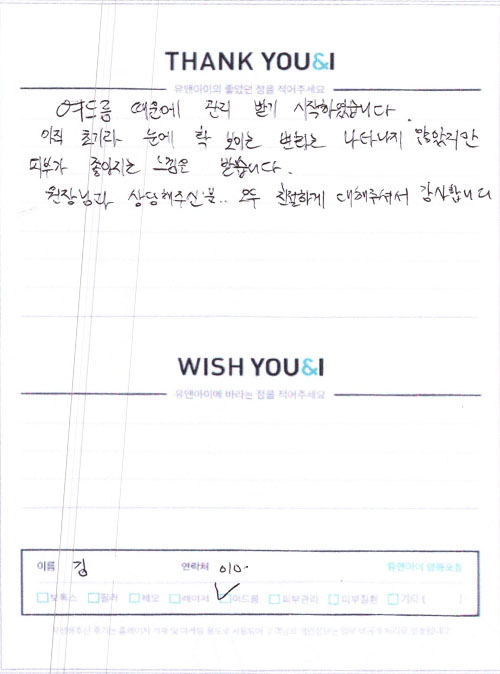 THANK YOU&I
유앤아이의 좋았던 점을 적어주세요
여드름 때문에 관리 받기 시작하였습니다.
아직 초기라 눈에 확 보이는 변화는 나타나지 않았지만
피부가 좋아지는 느낌은 받습니다.
원장님과 상담해주신분.. 모두 친절하게 대해주셔서 감사합니다
WISH YOU&I
유앤아이에 바라는 점을 적어주세요
이름 김 연락처 010- 유앤아이
보톡스 필러 제모 레이저 여드름 피부관리 피부질환 기타 ( )